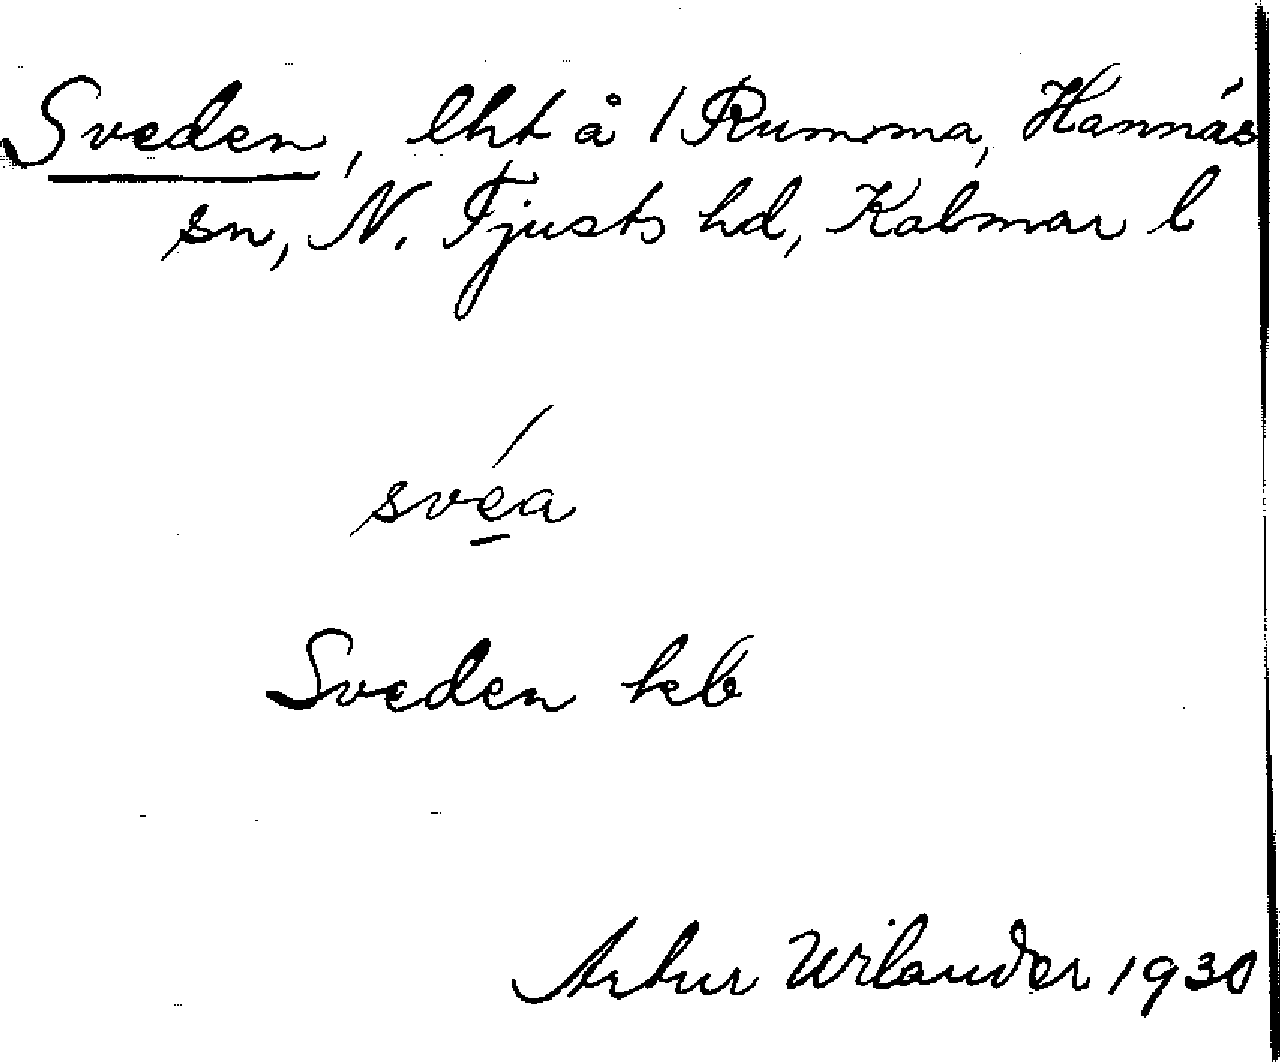 Sveden, lht å 1 Rumma, Hannäs
sn, N. Tjusts hd, Kalmar l
svéa
Sveden kb
Artur Wilander 1930